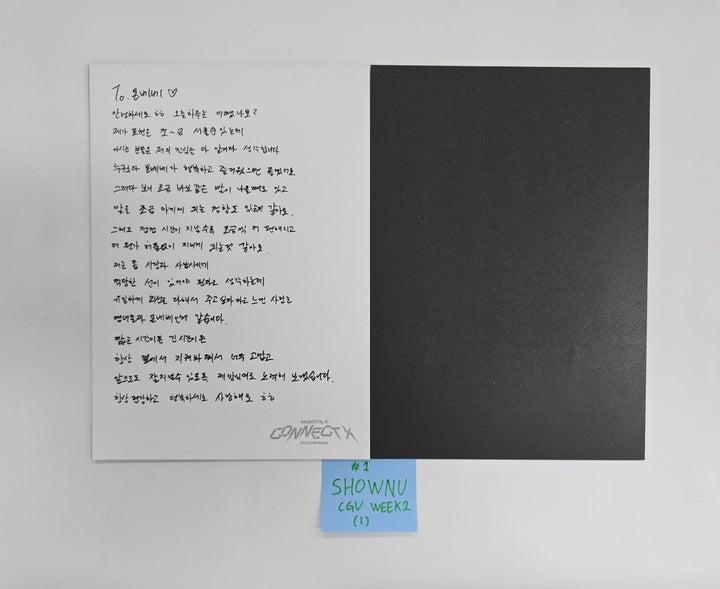 To. 몬베베 ♡
안녕하세요 ㅎㅎ 오늘하루는 어땠나요?
제가 표현은 쪼~금 서툴 수 있는데
아시는 분들은 저의 진심을 다 알거라 생각합니다
누구보다 몬베베가 행복하고 즐거웠으면 좋겠기도
그러다 보니 조금 바보같은 말이 나올때도 있고
말을 조금 아끼게 되는 경향도 있는것 같아요.
그래도 점점 시간이 지날수록 조금씩 더 편해지고
더 뭔가 허물없이 지내게 되는것 같아요.
저는 좀 사람과 사람사이에
적당한 선이 있어야 된다고 생각하는데
유일하게 최선을 다해서 주고싶다 라고 느낀 사람은
멤버들과 몬베베인것 같습니다.
짧은 시간이든 긴 시간이든
항상 옆에서 지켜봐줘서 너무 고맙고
앞으로도 잘지낼수 있도록 제 방식대로 노력해 보겠습니다.
항상 건강하고 행복하세요 사랑해요 ㅎㅎ
MONSTA X
CONNECT X
IN CINEMAS
#1
SHOWNU
CGV WEEK2
(1)